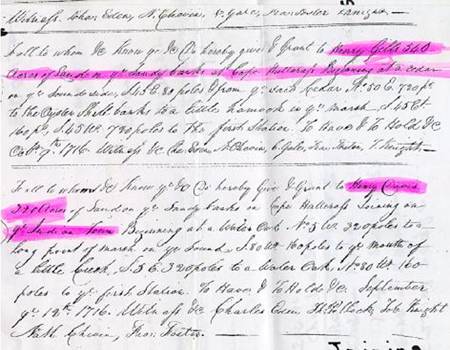 Witness Chas Eden, N. Chevin, C. Gale, Fran. Foster T. Knight.
To all to whom &c Know ye &c Do hereby give & Grant to Henry Gibbs 340
Acres of Land on ye Sandy banks at Cape Hatterass Beginning at a cedar
on ye Sound side, S.45 E. 80 poles & from ye Said Cedar N. 50 E. 720 ps
to the Oyster Shell banks to a little hamock in ye marsh S. 45 Et
160 ps, S. 45 Wt. 730 poles to the first Station. To Have & To Hold &c
7th 1716. Witness &c Cha Eden N. Chevin, C. Gale, Fran. Foster, T. Knight
To all to whom &c Know ye &c Do hereby Give & Grant to Henry Davis
320 Acres of Land on ye Sandy banks on Cape Hatterass Joining on
ye Indian Town Beginning at a Water Oak N. 5 W. 320 poles to a
long point of marsh on ye Sound S. 80 Wt 160 poles to ye mouth of
a little Creek, S. 5 E. 320 poles to a Water Oak, No. 80 Wt. 160
poles to ye first Station. To Have & To Hold &c. September
ye 12th 1716. Witness &c Charles Eden Th. Pollock, Tob Knight
Nath Chevin, Fran: Foster.
Joining